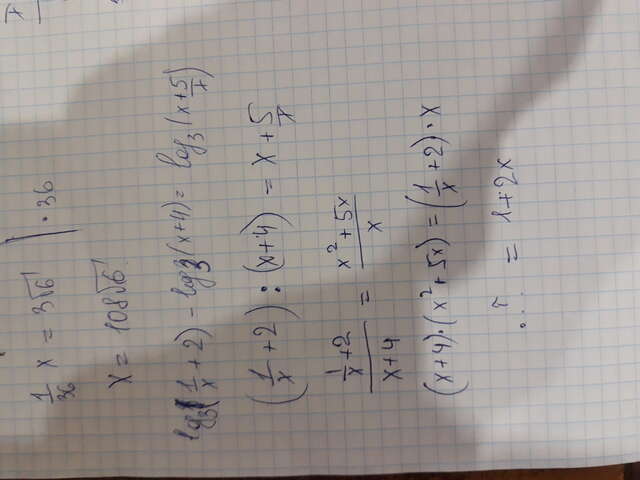 1/36 x = 3√6 | · 36
x = 108√6
log₃(1/x + 2) - log₃(x+4) = log₃(x + 5/x)
(1/x + 2) : (x+4) = x + 5/x
(1/x + 2)/(x+4) = (x² + 5x)/x
(x+4) · (x² + 5x) = (1/x + 2) · x
= 1+2x